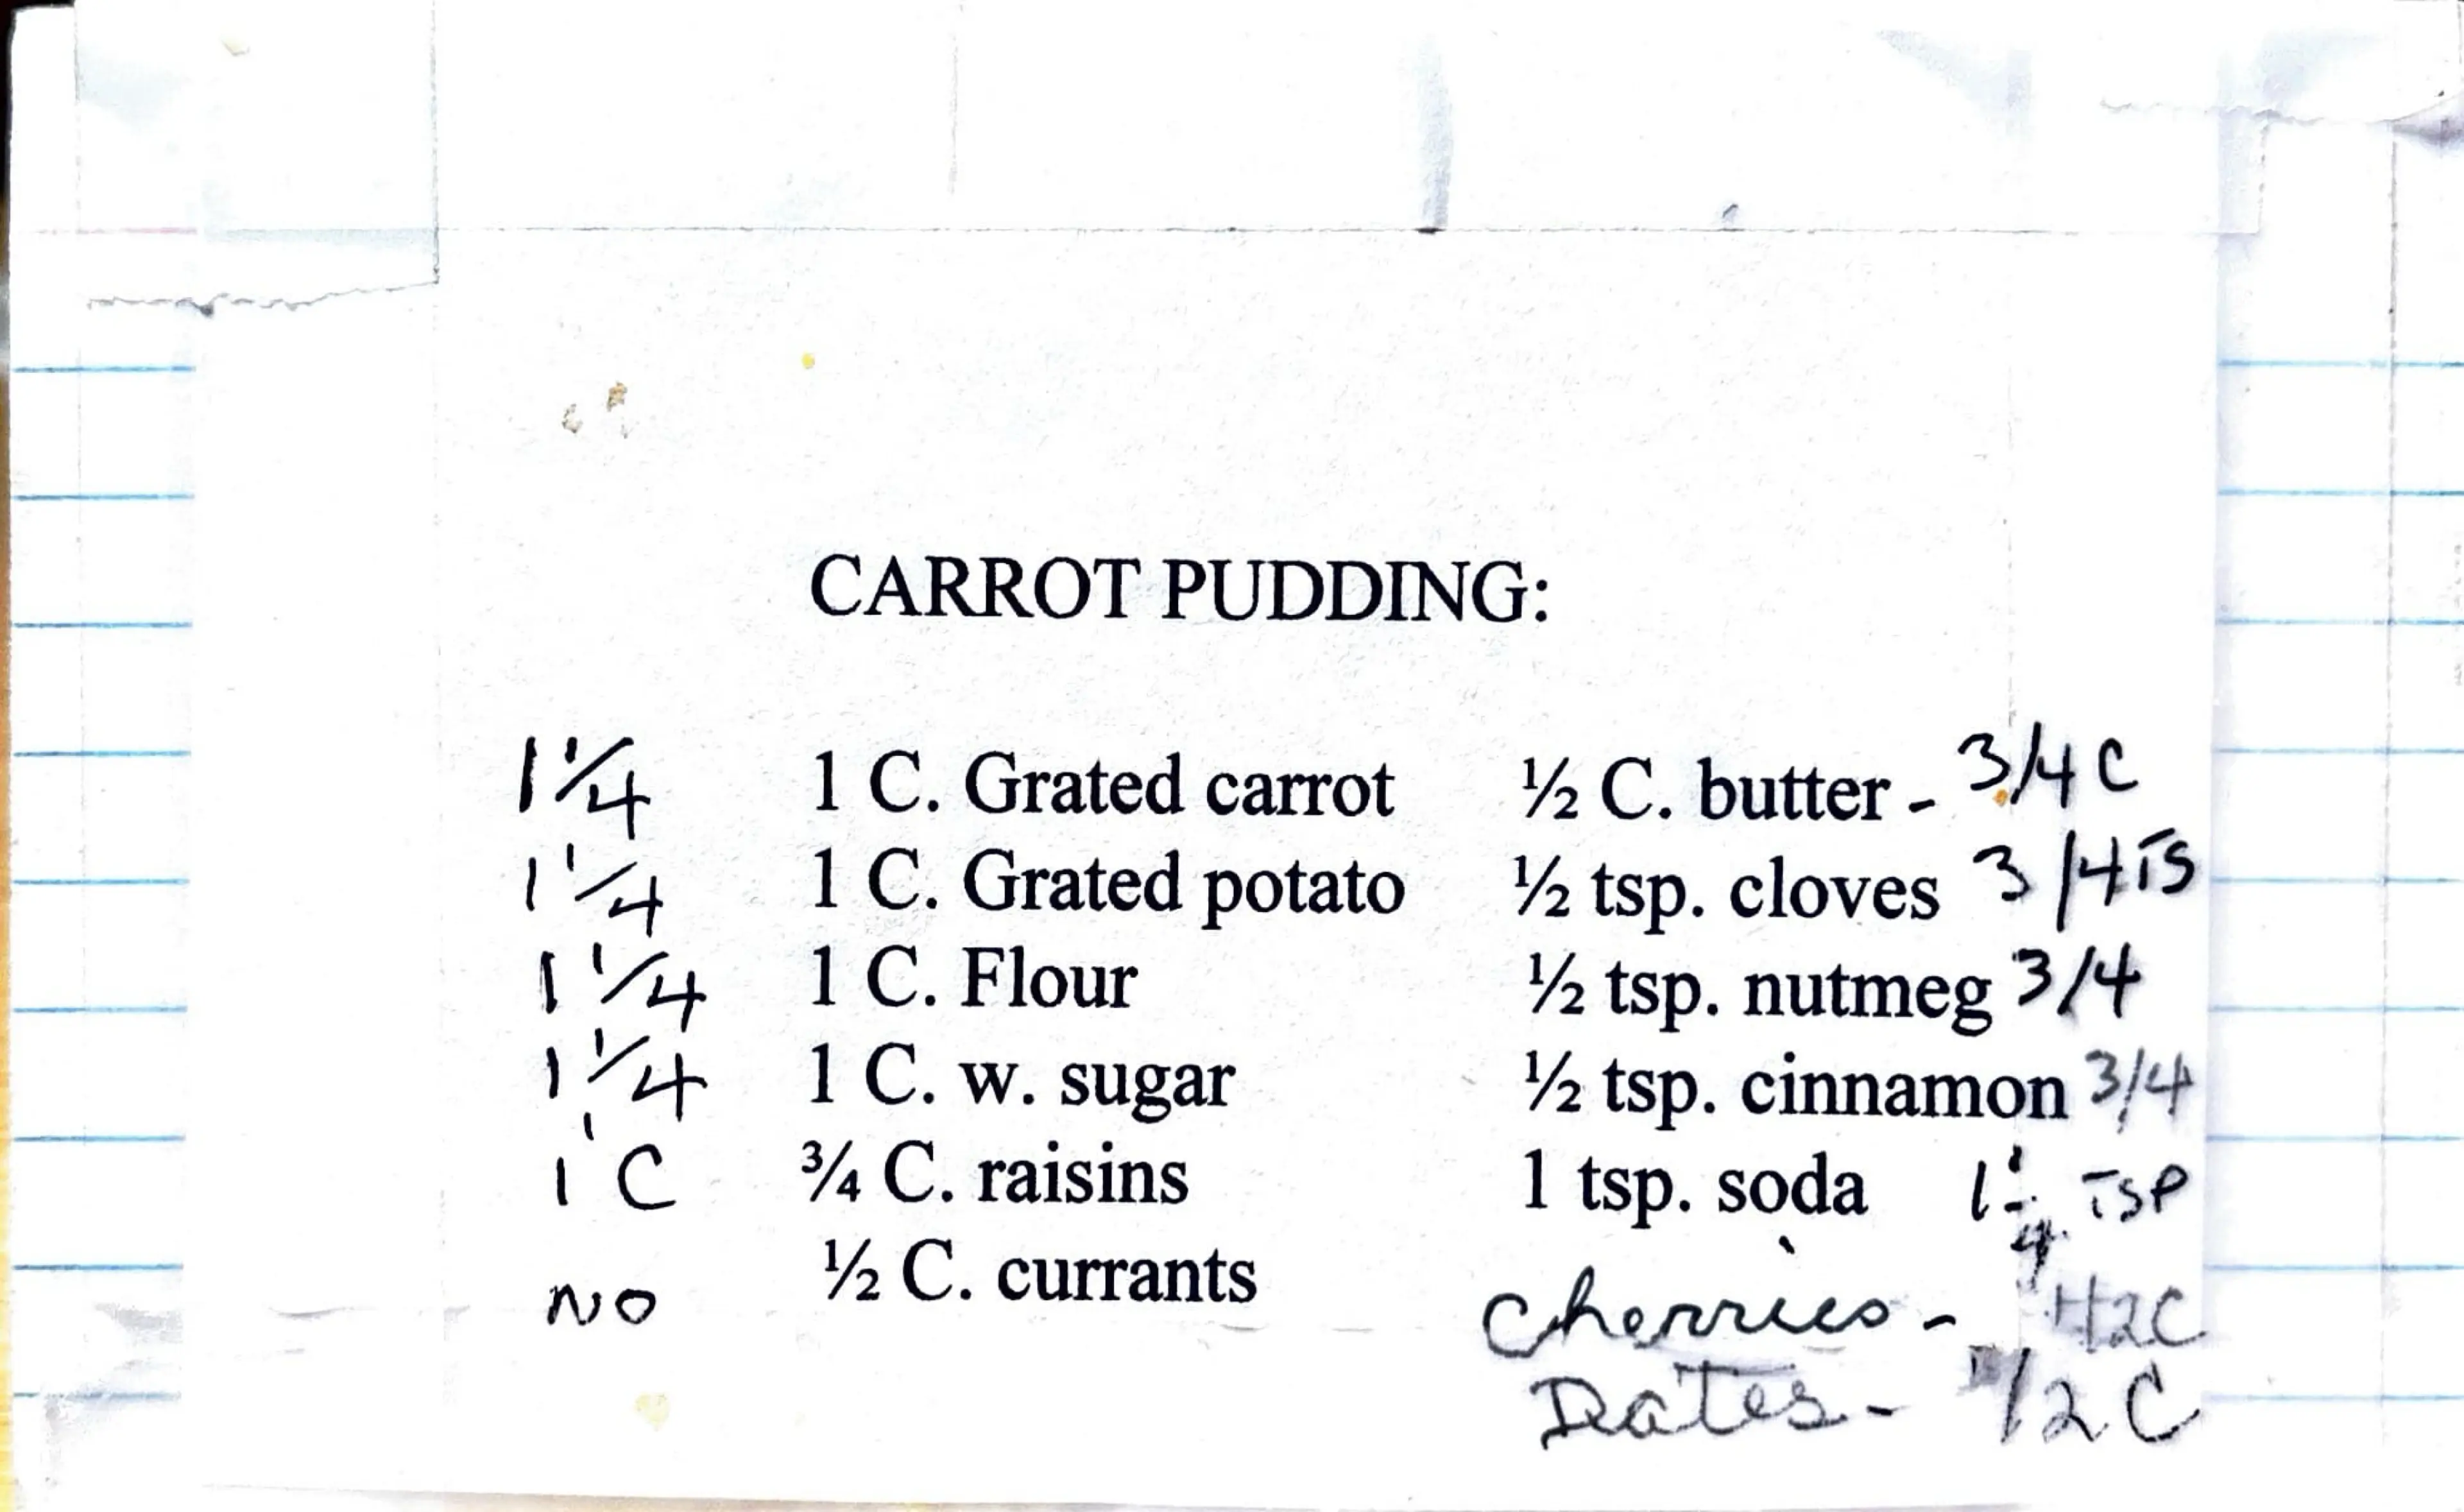 CARROT PUDDING:
1 1/4 1 C. Grated carrot ½ C. butter - 3/4 C
1 1/4 1 C. Grated potato ½ tsp. cloves 3/4 TS
1 1/4 1 C. Flour ½ tsp. nutmeg 3/4
1 1/4 1 C. w. sugar ½ tsp. cinnamon 3/4
1 C ¾ C. raisins 1 tsp. soda 1 1/4 TSP
NO ½ C. currants
Cherries - 1/2 C
Dates - 1/2 C